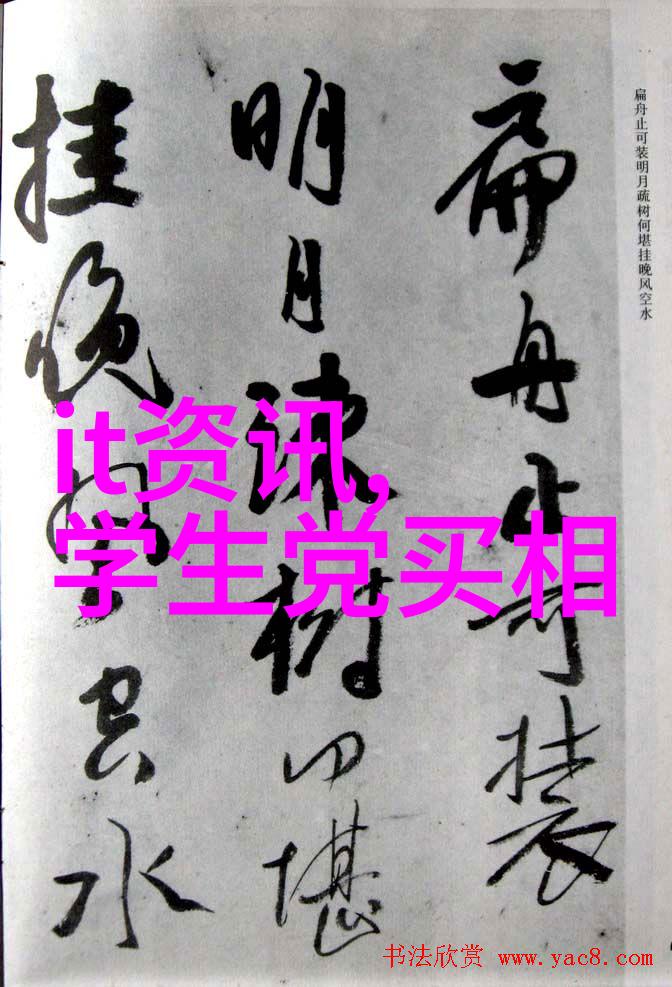 扁舟止可装明月疏树何堪挂晚风空水
扁舟止可装
明月疎树何堪
挂晚风空水
it资讯,
学生党买相
书法欣赏 www.yac8.com